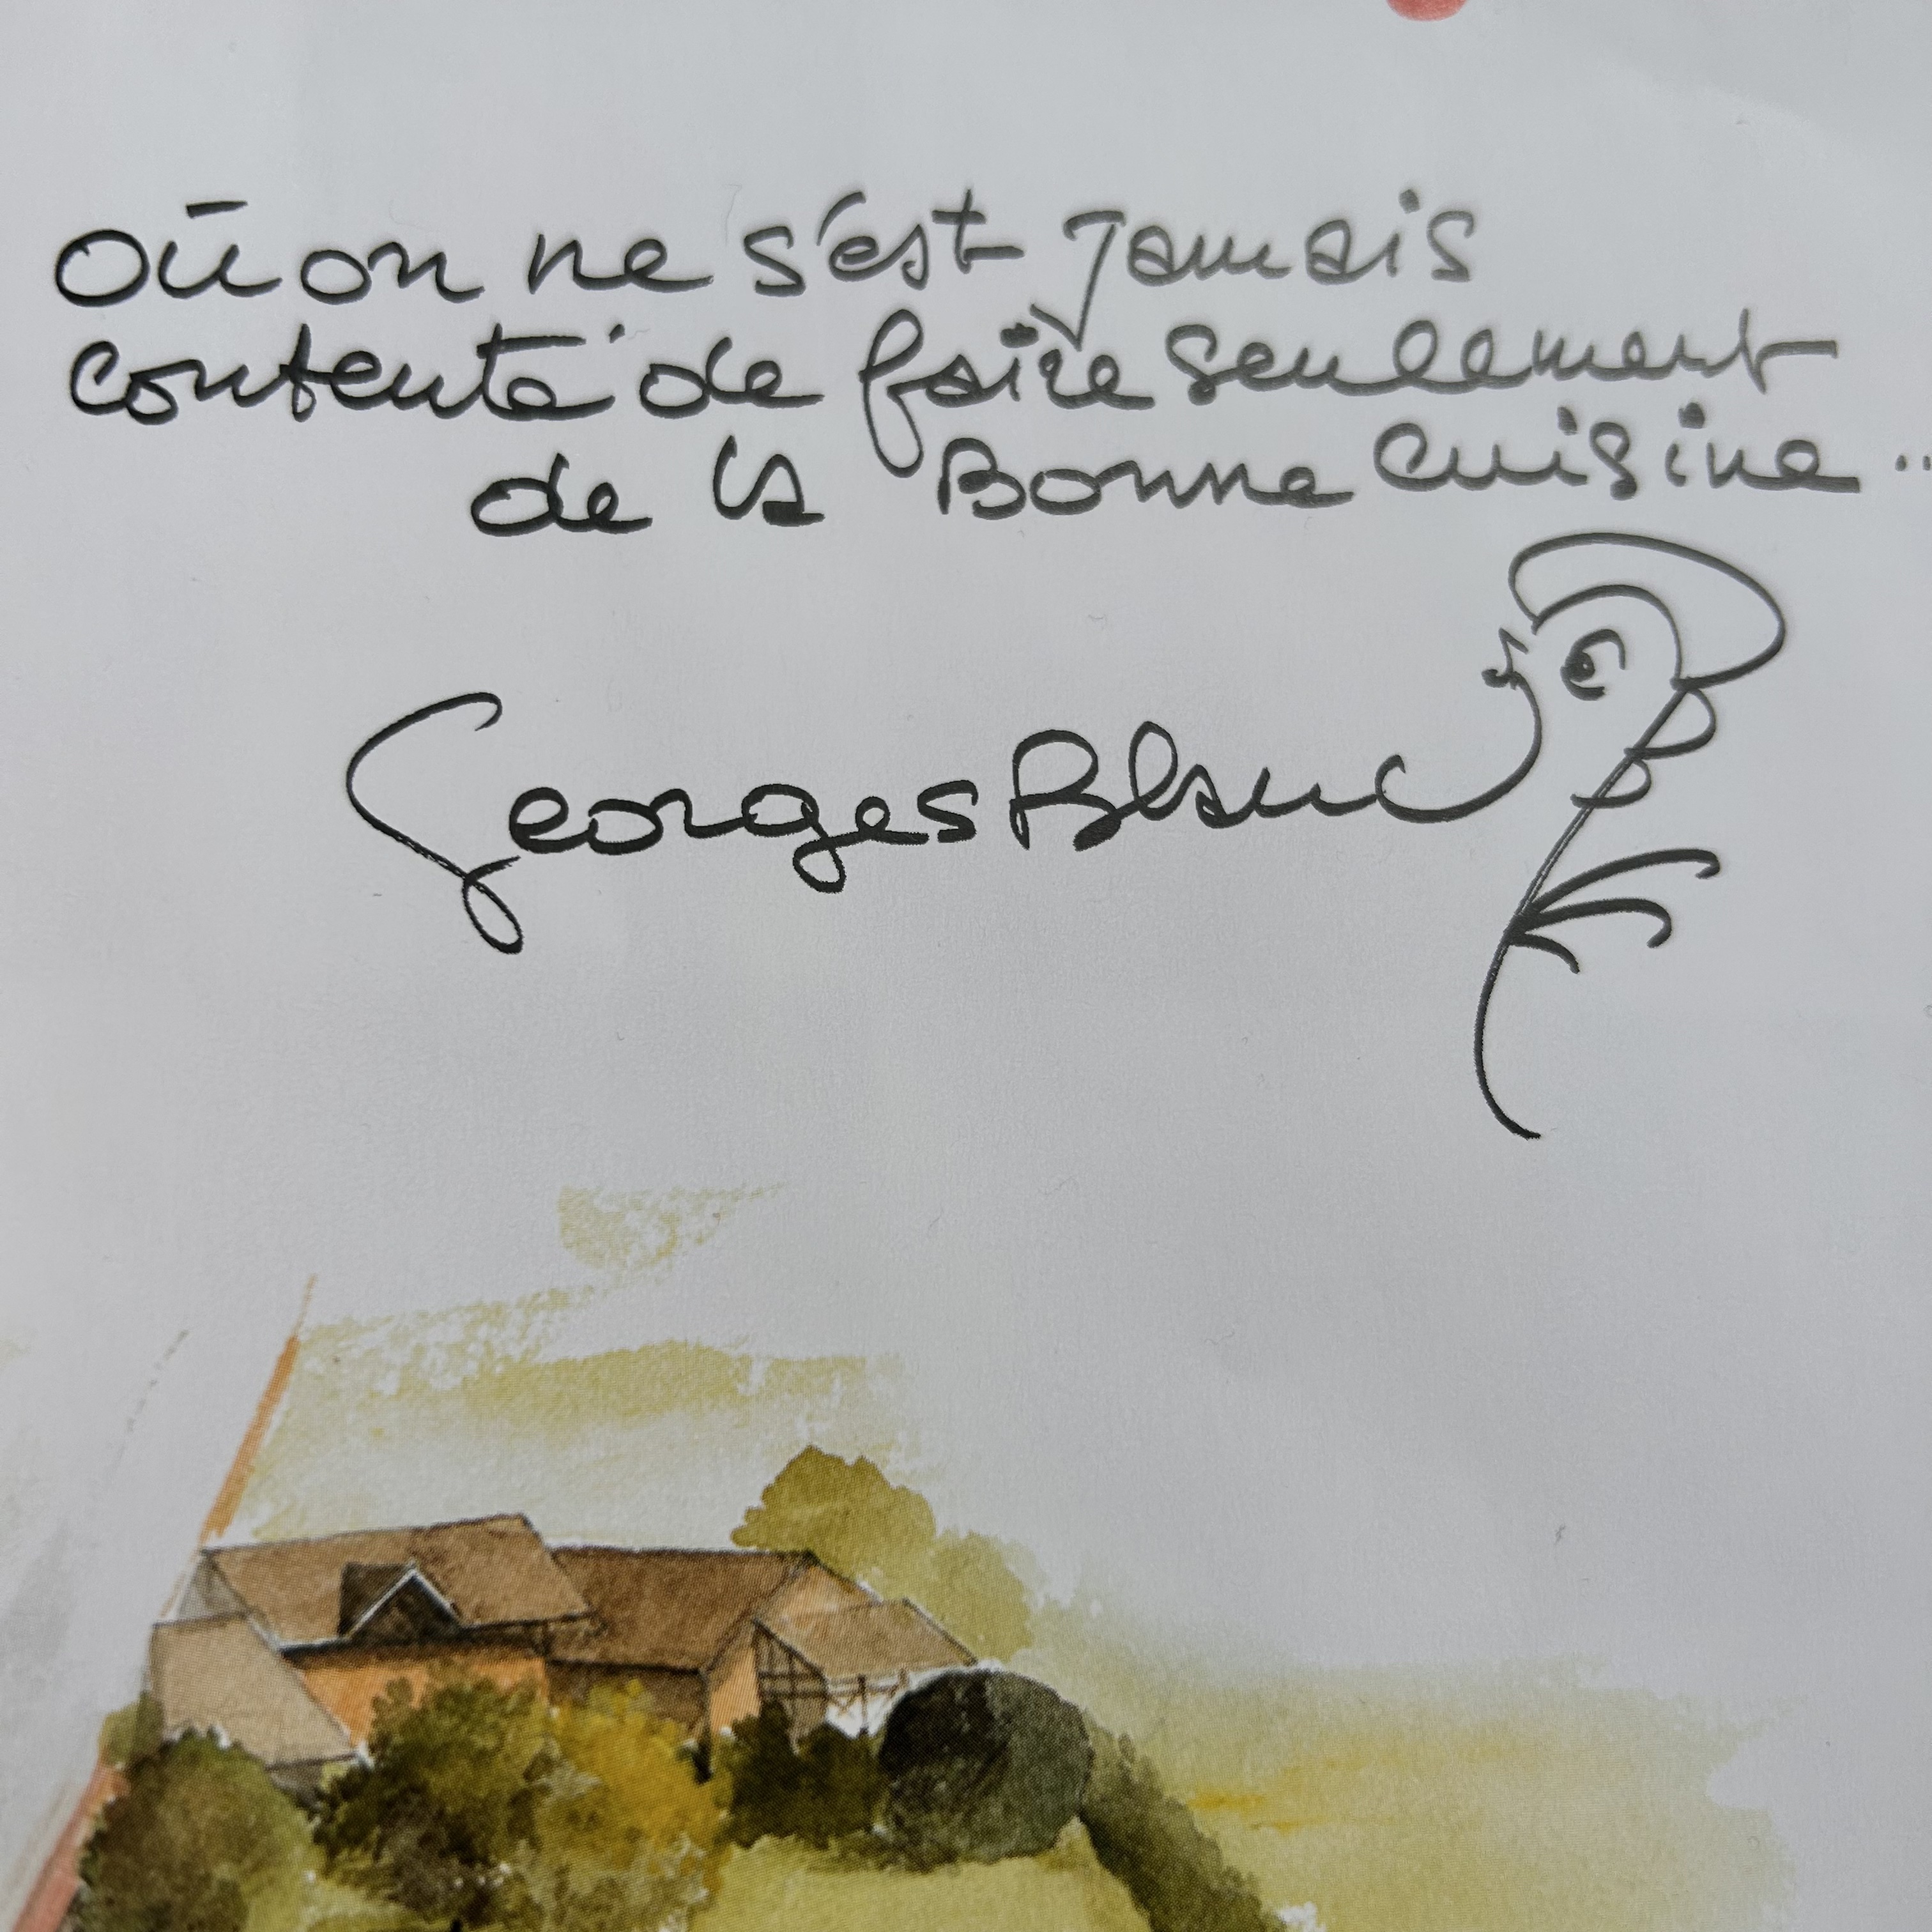 où on ne s'est jamais
contenté de faire seulement
de la Bonne cuisine...
Georges Blanc